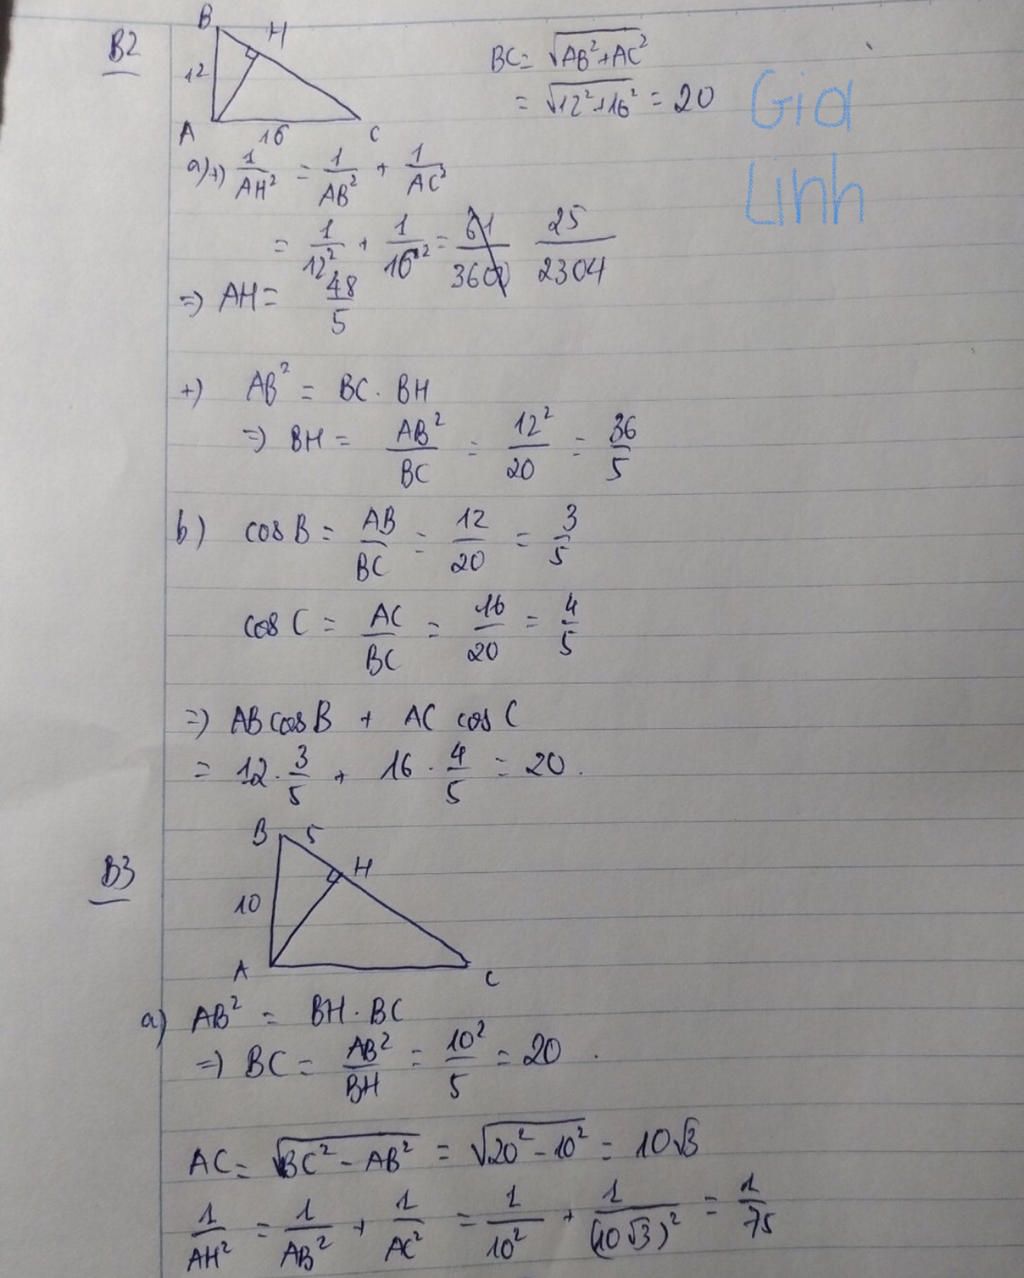 B2
B
H
12
A
16
C
BC = √(AB² + AC²)
= √(12² + 16²) = 20
Gia
Linh
a) +) 1/AH² = 1/AB² + 1/AC²
= 1/12² + 1/16² = 61/3600 25/2304
=> AH = 48/5
+) AB² = BC . BH
=> BH = AB²/BC = 12²/20 = 36/5
b) cosB = AB/BC = 12/20 = 3/5
cosC = AC/BC = 16/20 = 4/5
=> ABcosB + AC cosC
= 12 . 3/5 + 16 . 4/5 = 20 .
B3
B
5
H
10
A
C
a) AB² = BH . BC
=> BC = AB²/BH = 10²/5 = 20 .
AC = √(BC² - AB²) = √(20² - 10²) = 10√3
1/AH² = 1/AB² + 1/AC² = 1/10² + 1/(10√3)² = 1/75